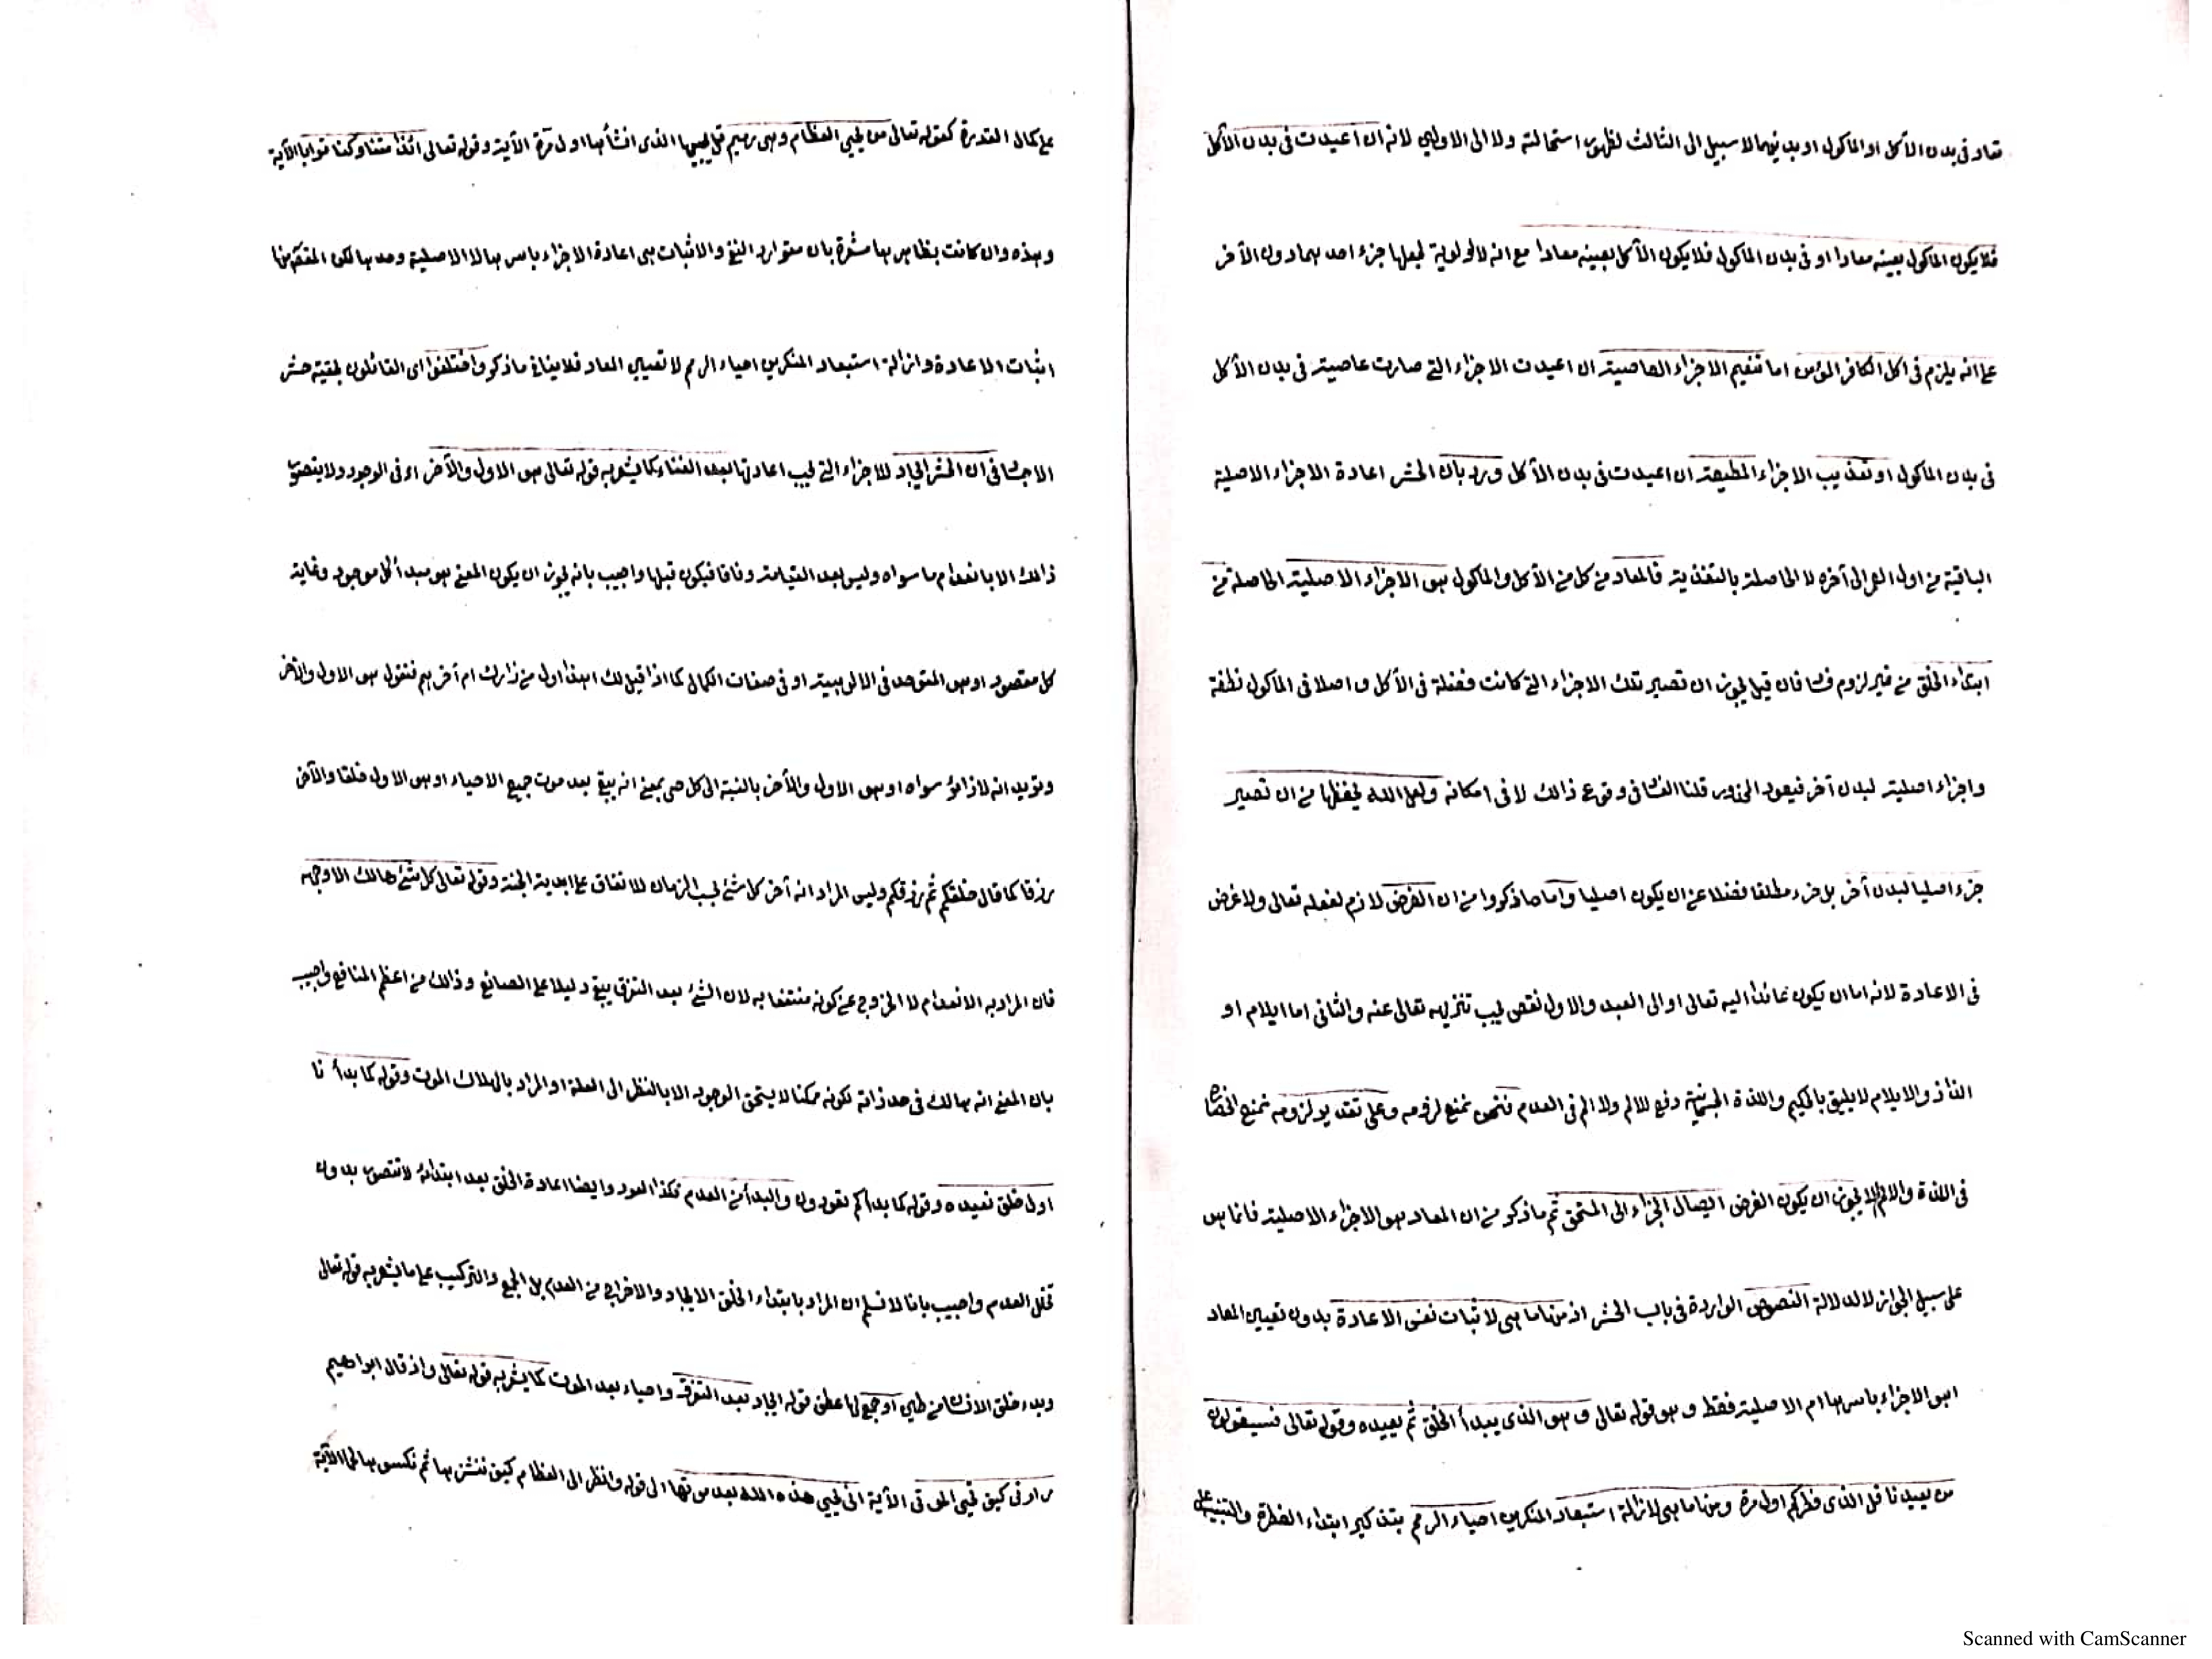 تعاد فى بدن الآكل او المأكول او بدنيهما لا سبيل الى الثالث لظهور استحالته ولا الى الاولين لانه ان اعيدت فى بدن الآكل
فلا يكون المأكول بعينه معادا او فى بدن المأكول فلا يكون الآكل بعينه معادا مع انه لا اولوية لجعلها جزء احدهما دون الآخر
على انه يلزم فى اكل الكافر المؤمن اما تنعيم الاجزاء العاصية ان اعيدت الاجزاء التى صارت عاصية فى بدن الآكل
فى بدن المأكول او تعذيب الاجزاء المطيعة ان اعيدت فى بدن الآكل ورد بان الحشر اعادة الاجزاء الاصلية
الباقية من اول العمر الى آخره لا الحاصلة بالتغذية فالمعاد من كل من الآكل والمأكول هو الاجزاء الاصلية الحاصلة من
ابتداء الخلق من غير لزوم فساد فان قيل يجوز ان تصير تلك الاجزاء التى كانت فضلة فى الآكل واصلا فى المأكول نطفة
واجزاء اصلية لبدن آخر فيعود المحذور قلنا الفساد فى وقوع ذالك لا فى امكانه ولعل الله يحفظها من ان تصير
جزء اصليا لبدن آخر بل جزء مطلقا فضلا عن ان يكون اصليا واما ما ذكروا من ان الغرض لازم لفعله تعالى ولا غرض
فى الاعادة لانه اما ان يكون عائدا اليه تعالى او الى العبد والاول نقص يجب تنزيهه تعالى عنه والثانى اما ايلام او
الذاذ والايلام لا يليق بالحكيم واللذة الجسمانية دفع للالم ولا الم فى العدم فنحن نمنع لزومه وعلى تقدير لزومه نمنع انحصاره
فى اللذة والالم لا يجوز ان يكون الغرض ايصال الجزاء الى المستحق ثم ما ذكر من ان المعاد هو الاجزاء الاصلية فانما هو
على سبيل الجواز لا لدلالة النصوص الواردة فى باب الحشر اذ منها ما هى لاثبات نفس الاعادة بدون تعيين المعاد
اهو الاجزاء باسرها ام الاصلية فقط وهو قوله تعالى وهو الذى يبدأ الخلق ثم يعيده وقوله تعالى فسيقولون
من يعيدنا قل الذى فطركم اول مرة ومنها ما هى لازالة استبعاد المنكرين احياء الرمم بتذكير ابتداء الفطرة والتنبيه على
على كمال القدرة كقوله تعالى من يحيى العظام وهى رميم قل يحييها الذى انشأها اول مرة الآية وقوله تعالى ائذا متنا وكنا ترابا الآية
وهذه وان كانت بظاهرها مشعرة بان متوارد النفى والاثبات هى اعادة الاجزاء باسرها لا الاصلية وحدها لكن المقصود منها
اثبات الاعادة وازالة استبعاد المنكرين احياء الرمم لا تعيين المعاد فلا ينافى ما ذكر واختلفوا اى القائلون بحقية حشر
الاجساد فى ان الحشر ايجاد للاجزاء التى يجب اعادتها بعد الفناء كما يشعر به قوله تعالى هو الاول والآخر اى فى الوجود ولا يتصور
ذالك الا بانعدام ما سواه وليس بعد القيامة وفاقا فيكون قبلها واجيب بانه يجوز ان يكون المعنى هو مبدأ كل موجود وغاية
كل مقصود او هو المتوحد فى الالوهية او فى صفات الكمال كما اذا قيل لك اهذا اول من زارك ام آخرهم فتقول هو الاول والآخر
وتريد انه لا زائر سواه او هو الاول والآخر بالنسبة الى كل حى بمعنى انه يبقى بعد موت جميع الاحياء او هو الاول خلقا والآخر
رزقا كما قال خلقكم ثم رزقكم وليس المراد انه آخر كل شئ بحسب الزمان للاتفاق على ابدية الجنة وقوله تعالى كل شئ هالك الا وجهه
فان المراد به الانعدام لا الخروج عن كونه منتفعا به لان الشئ بعد التفرق يبقى دليلا على الصانع وذالك من اعظم المنافع واجيب
بان المعنى انه هالك فى حد ذاته لكونه ممكنا لا يستحق الوجود الا بالنظر الى العلة او المراد بالهلاك الموت وقوله كما بدأنا
اول خلق نعيده وقوله كما بدأكم تعودون والبدأ من العدم فكذا العود وايضا اعادة الخلق بعد ابتدائه لا تتصور بدون
تخلل العدم واجيب بانا لا نسلم ان المراد بابتداء الخلق الايجاد والاخراج من العدم بل الجمع والتركيب على ما يشعر به قوله تعالى
وبدء خلق الانسان من طين او جمع لها عطف قوله ايجاد بعد التفرق واحياء بعد الموت كما يشعر به قوله تعالى واذ قال ابراهيم
رب ارنى كيف تحيى الموتى الآية انى يحيى هذه الله بعد موتها الى قوله وانظر الى العظام كيف ننشزها ثم نكسوها لحما الآية